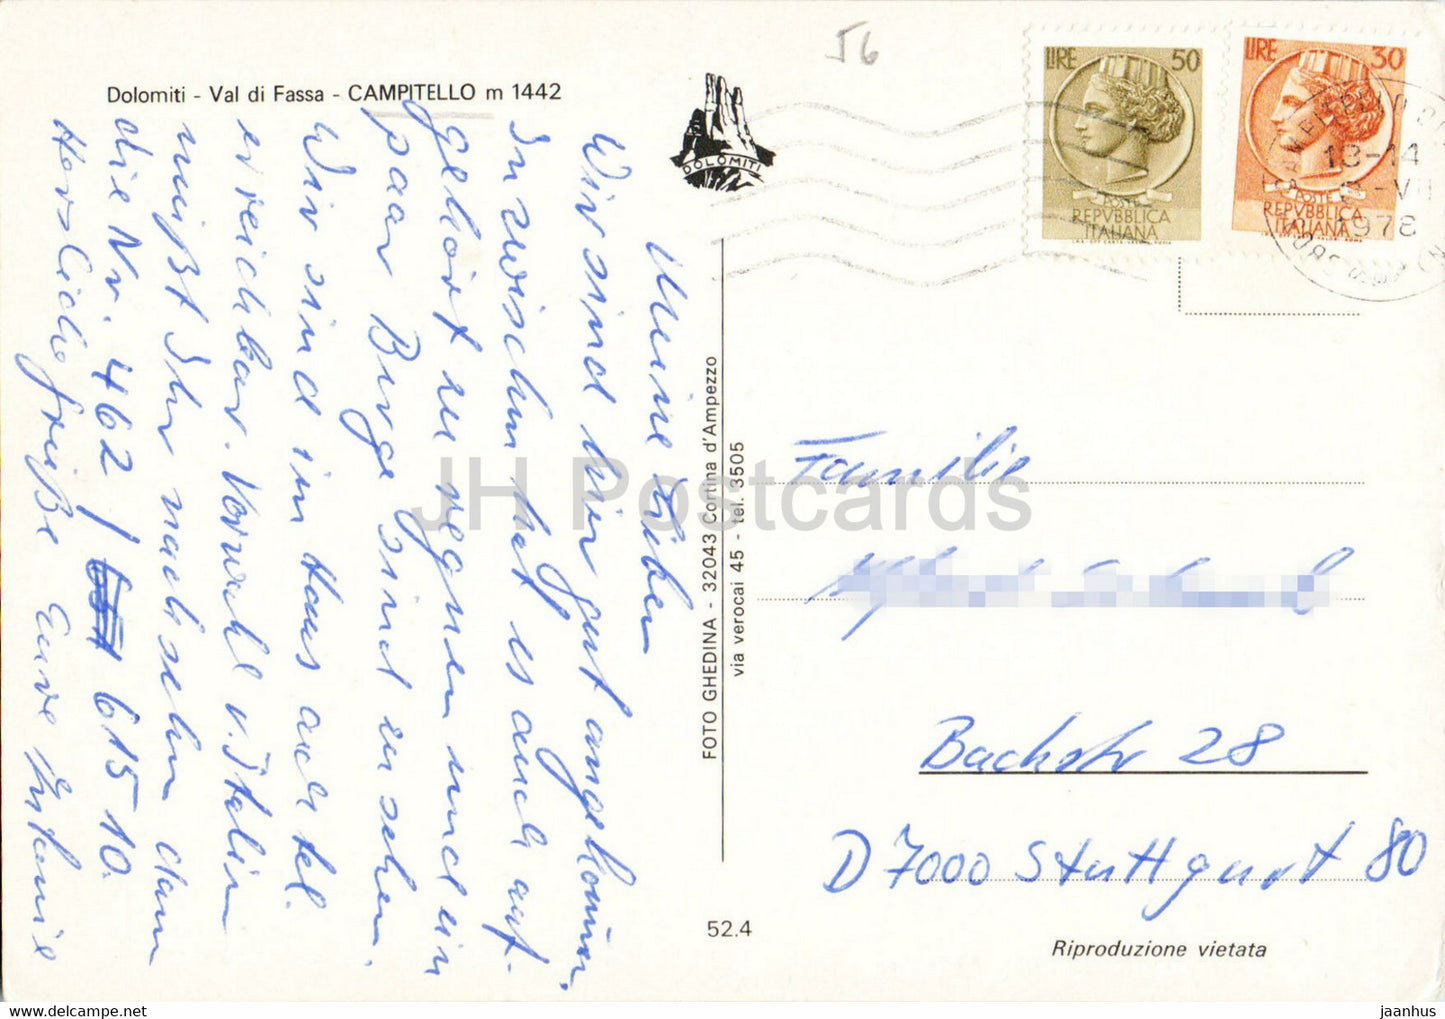 56
Dolomiti - Val di Fassa - CAMPITELLO m 1442
DOLOMITI
LIRE 50
POSTE
REPVBBLICA
ITALIANA
LIRE 30
POSTE
REPVBBLICA
ITALIANA
13-14
1978
Meine Lieben
Wir sind hier gut angekommen.
Inzwischen hat es auch auf-
gehört zu regnen und ein
paar Berge sind zu sehen.
Wir sind im Haus auch tel.
erreichbar. Vorwahl v. Italien
müßt Ihr nachsehen dann
die Nr. 462 / 61510.
Herzliche Grüße Eure
FOTO GHEDINA - 32043 Cortina d'Ampezzo
via verocai 45 - tel. 3505
JH Postcards
Familie
Bachstr 28
D 7000 Stuttgart 80
52.4
Riproduzione vietata
jaanhus.delcampe.net
jaanhus